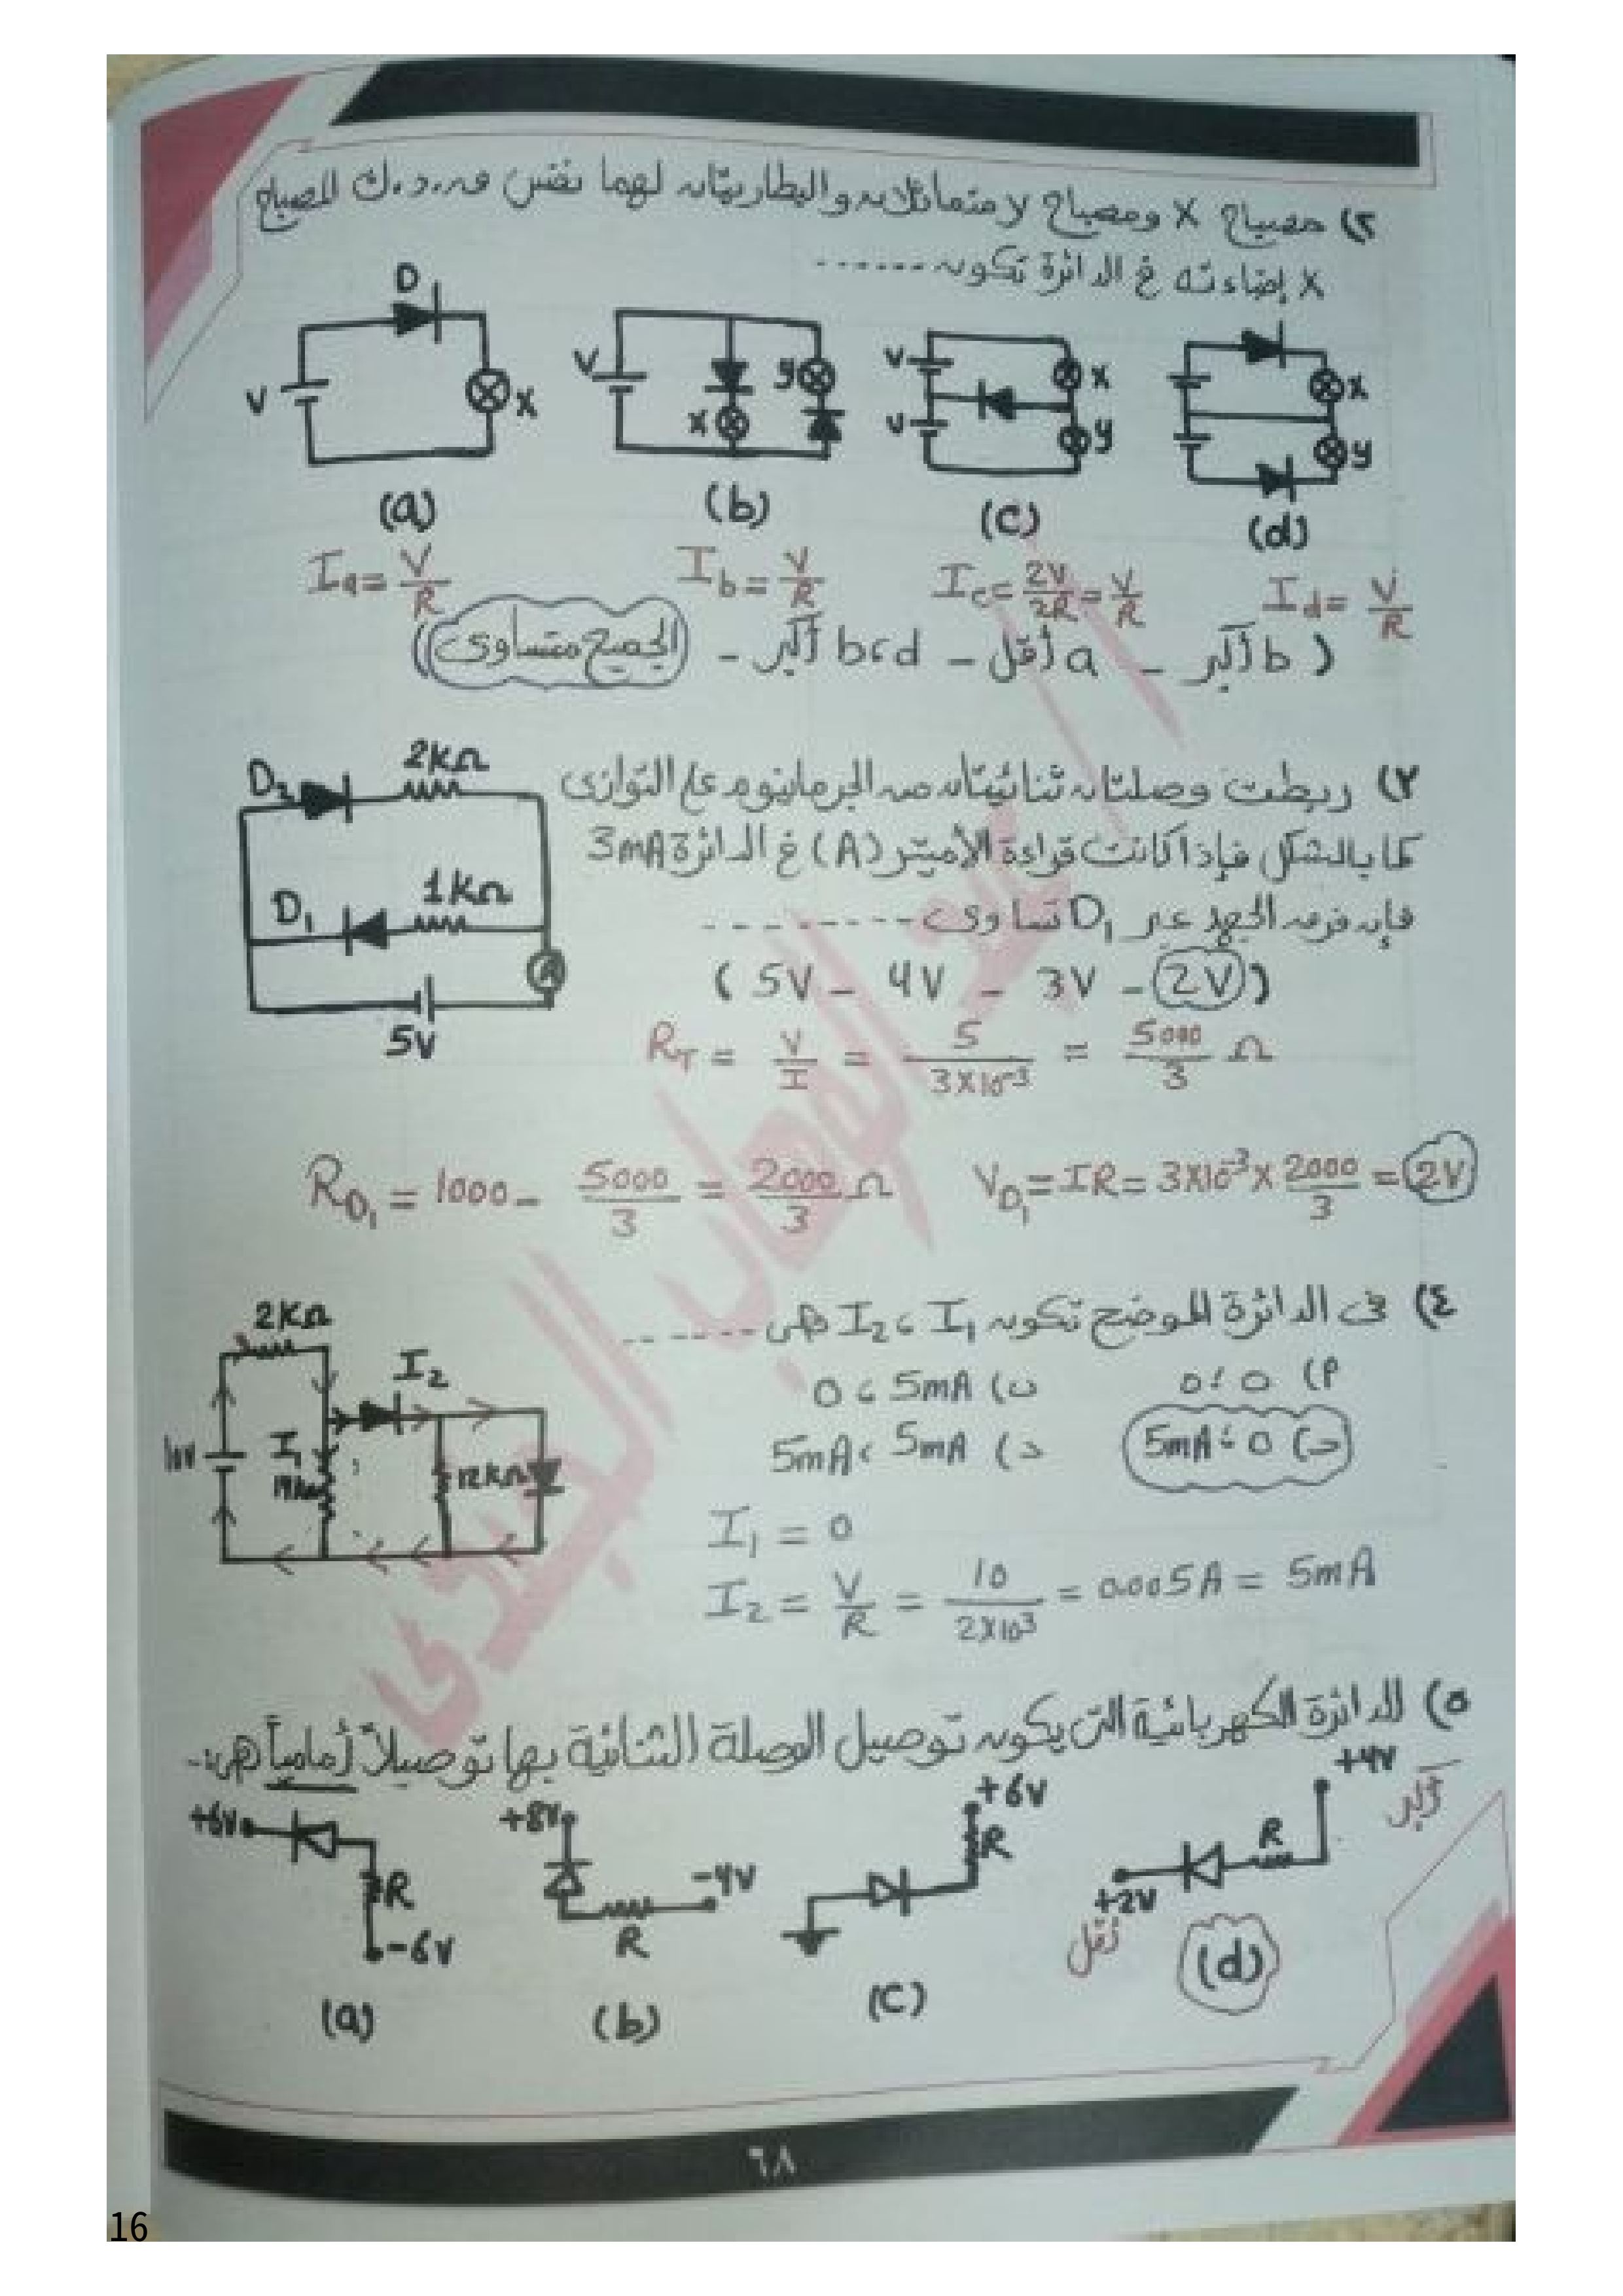 ٢) مصباح X ومصباح y متماثلان والبطاريتان لهما نفس ق.د.ك المصباح
X إضاءته في الدائرة تكون -------
D
V
X
(a)
V
X
y
(b)
V
V
X
y
(c)
X
y
(d)
Ia = V/R
Ib = V/R
Ic = 2V/2R = V/R
Id = V/R
( b أكبر - a أقل - b،d أكبر - الجميع متساوى )
٣) ربطت وصلتان ثنائيتان من الجرمانيوم على التوازى
كما بالشكل فإذا كانت قراءة الأميتر (A) في الدائرة 3mA
فإن فرق الجهد عبر D1 تساوى ---------
( 5V - 4V - 3V - 2V )
D2
2kΩ
D1
1kΩ
A
5V
RT = V/I = 5/3×10⁻³ = 5000/3 Ω
RD1 = 1000 - 5000/3 = 2000/3 Ω
VD1 = IR = 3×10⁻³ × 2000/3 = 2V
٤) فى الدائرة الموضح تكون I1 ، I2 هى -------
أ) 0 ، 0
ب) 5mA ، 0
ج) 0 ، 5mA
د) 5mA ، 5mA
2KΩ
I2
I1
10V
12kΩ
I1 = 0
I2 = V/R = 10/2×10³ = 0.005A = 5mA
٥) الدائرة الكهربائية التى يكون توصيل الوصلة الثنائية بها توصيلاً أمامياً هى..
+6V
R
-6V
(a)
+8V
R
-4V
(b)
+6V
R
(c)
+4V
أكبر
R
+2V
أقل
(d)
٦٨
16